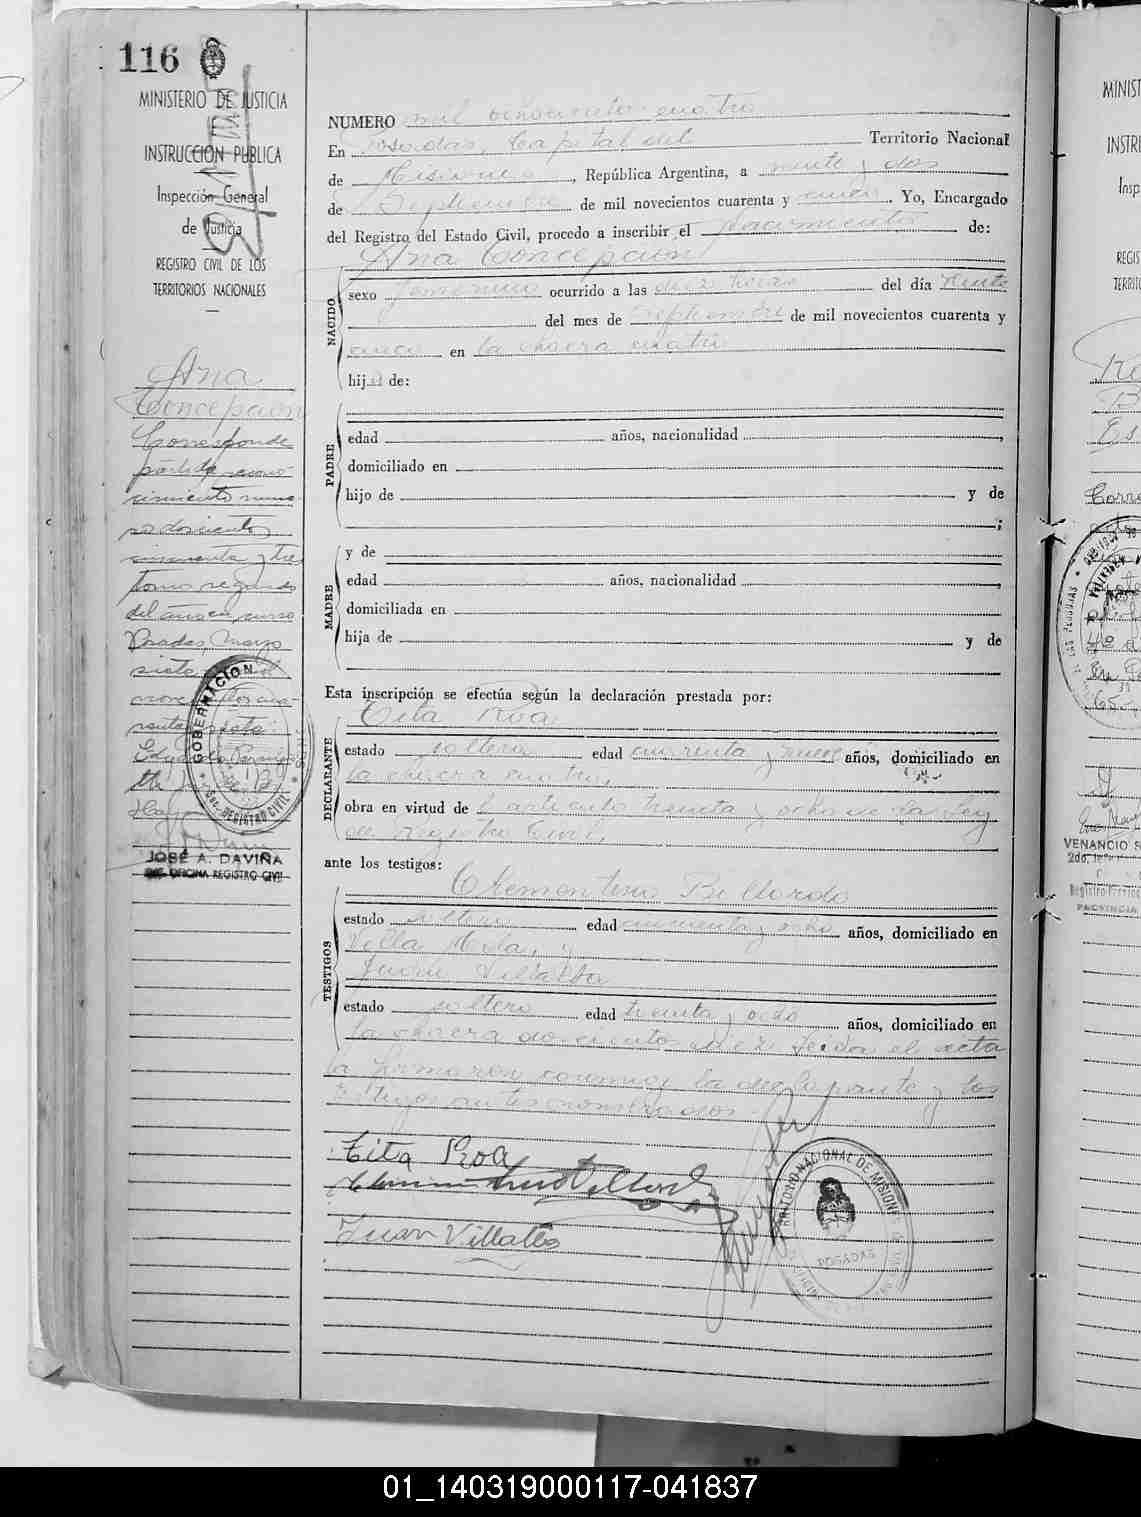 116
MINISTERIO DE JUSTICIA
INSTRUCCIÓN PUBLICA
Inspección General
de Justicia
REGISTRO CIVIL DE LOS
TERRITORIOS NACIONALES
Ana
Concepcion
Corresponde
partida recono-
cimiento nume-
ro doscientos
cincuenta y tres
tomo segundo
del año en curso
Posadas, Marzo
siete
GOBERNACION
REGISTRO CIVIL
JOSÉ A. DAVIÑA
OFICINA REGISTRO CIVIL
NUMERO mil ochocientos cuatro
En Posadas, Capital del Territorio Nacional
de Misiones, República Argentina, a veinte y dos
de Septiembre de mil novecientos cuarenta y cinco. Yo, Encargado
del Registro del Estado Civil, procedo a inscribir el nacimiento de:
Ana Concepcion
NACIDO
sexo femenino ocurrido a las diez horas del día veinte
del mes de Septiembre de mil novecientos cuarenta y
cinco en la chacra cuatro
hija de:
PADRE
edad años, nacionalidad ,
domiciliado en
hijo de y de
;
MADRE
y de
edad años, nacionalidad ,
domiciliada en
hija de y de
Esta inscripción se efectúa según la declaración prestada por:
DECLARANTE
Tita Roa
estado soltera edad cuarenta y nueve años, domiciliado en
la chacra cuatro,
obra en virtud de l articulo treinta y ocho de la Ley
de Registro Civil,
ante los testigos:
TESTIGOS
Clementino Billordo
estado soltero edad cincuenta y ocho años, domiciliado en
Villa Mola, y
Juan Villalba
estado soltero edad treinta y ocho años, domiciliado en
la chacra doscientos diez. Leida el acta
la firmaron conmigo la declarante y los
testigos antes nombrados.
Tita Roa
Juan Villalba
TERRITORIO NACIONAL DE MISIONES
POSADAS
MINIST
INSTR
Insp
REGIS
TERRIT
Corre
VENANCIO
PROVINCIA
01_140319000117-041837